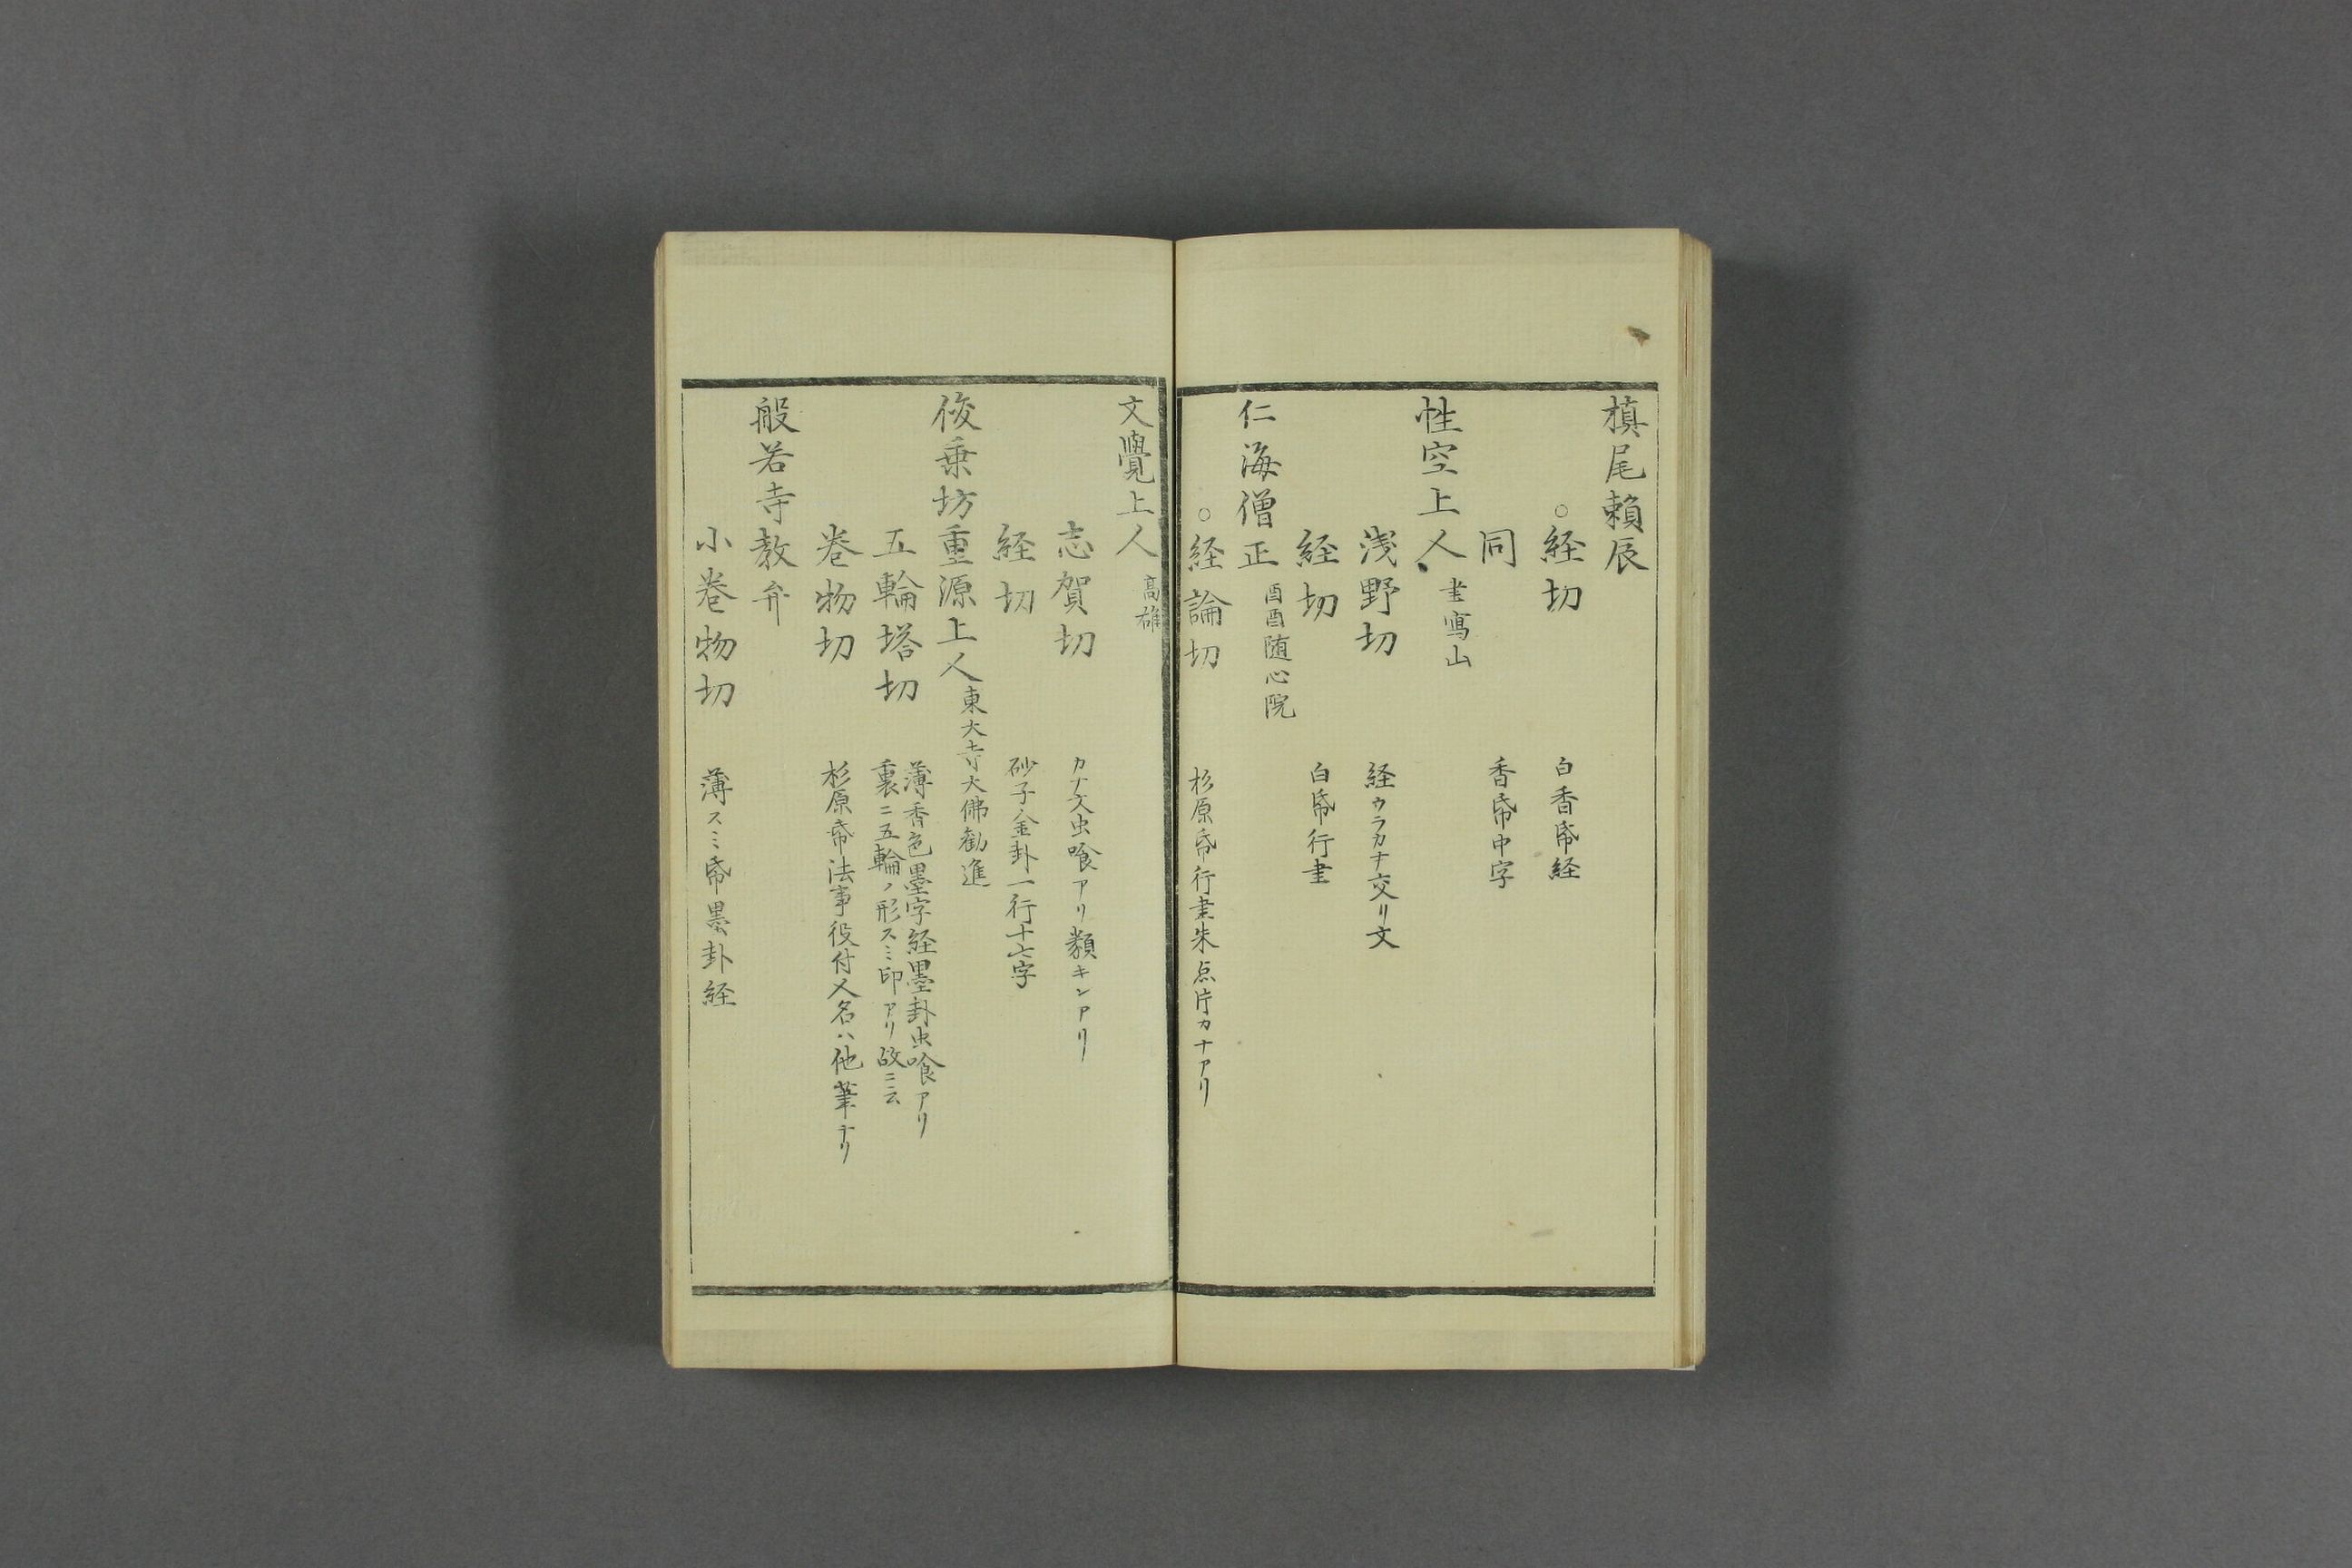 槙尾頼辰
○経切 白香帋経
同 香帋中字
性空上人 書寫山
浅野切 経ウラカナ交リ文
経切 白帋行書
仁海僧正 酉酉随心院
○経論切 杉原帋行書朱点片カナアリ
文覺上人 高雄
志賀切 カナ文虫喰アリ類キンアリ
経切 砂子金卦一行十七字
俊乗坊重源上人 東大寺大佛勧進
五輪塔切 薄香色墨字経墨卦虫喰アリ
裏ニ五輪ノ形スミ印アリ故ニ云
巻物切 杉原帋法事役付人名ハ他筆ナリ
般若寺教弁
小巻物切 薄スミ帋墨卦経